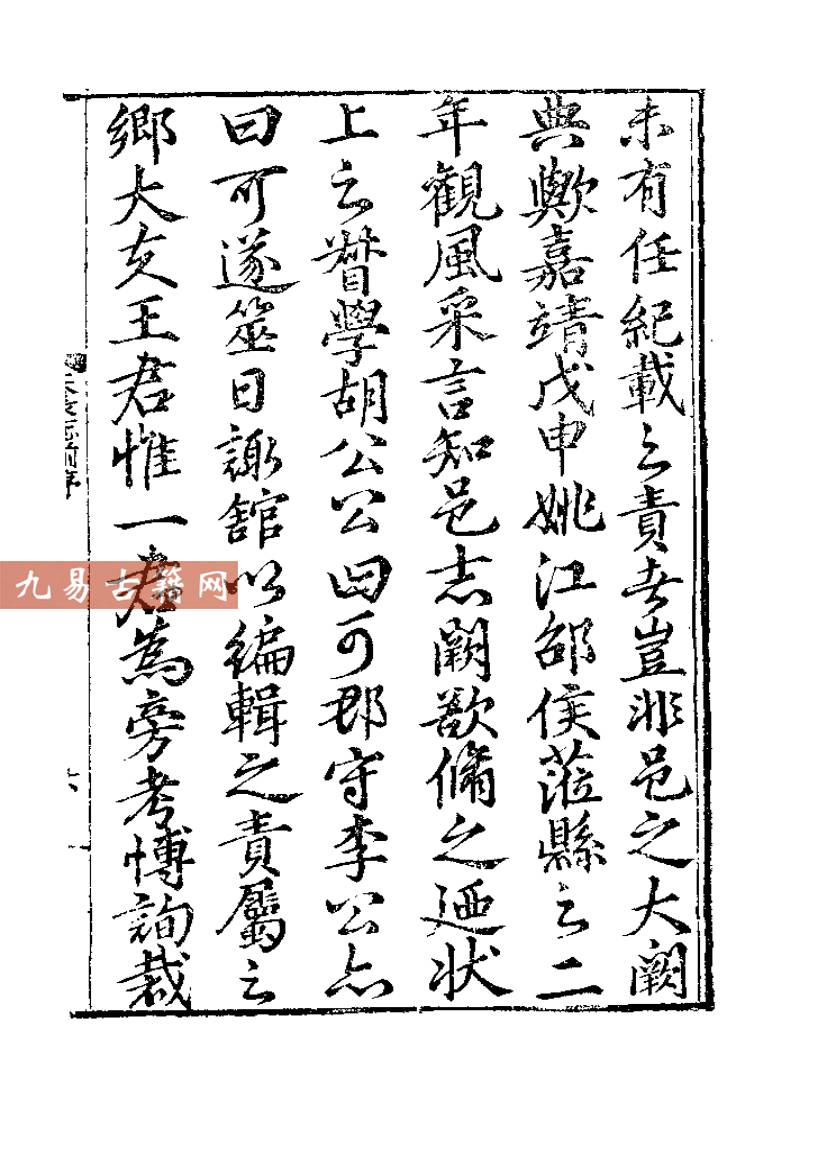 未有任紀載之責者豈非邑之大闕
典歟嘉靖戊申姚江邵侯蒞縣之二
年觀風采言知邑志闕欲脩之廼狀
上之督學胡公公曰可郡守李公亦
曰可遂筮日諏舘以編輯之責屬之
鄉大夫王君惟一君為旁考博詢裁
九易古籍网